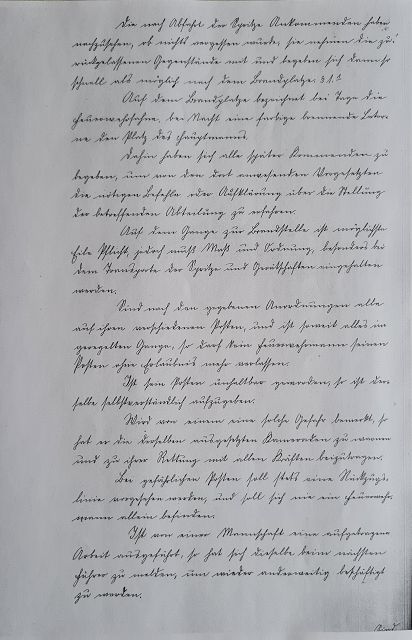 Die nach Abfahrt der Spritze Ankommenden haben
nachzusehen, ob nichts vergessen wurde; sie nehmen die zu-
rückgelassenen Gegenstände mit und begeben sich dann so
schnell als möglich nach dem Brandplatze.
Auf dem Brandplatze bezeichnet bei Tage die
Feuerwehrfahne, bei Nacht eine farbige brennende Later-
ne den Platz des Hauptmanns.
Dahin haben sich alle später Kommenden zu
begeben, um von den dort anwesenden Vorgesetzten
die nötigen Befehle oder Aufklärung über die Stellung
der betreffenden Abteilung zu erfahren.
Auf dem Gange zur Brandstelle ist möglichste
Eile Pflicht, jedoch muß Maß und Ordnung, besonders bei
dem Transporte der Spritze und Gerätschaften eingehalten
werden.
Sind nach den gegebenen Anordnungen alle
auf ihren verschiedenen Posten, und ist soweit alles im
geregelten Gange, so darf kein Feuerwehrmann seinen
Posten ohne Erlaubnis mehr verlassen.
Ist sein Posten unhaltbar geworden, so ist der-
selbe selbstverständlich aufzugeben.
Wird von einem eine solche Gefahr bemerkt, so
hat er die derselben ausgesetzten Kameraden zu warnen
und zu ihrer Rettung mit allen Kräften beizutragen.
Bei gefährlichen Posten soll stets eine Rückzugs-
linie vorgesehen werden, und soll sich nie ein Feuerwehr-
mann allein befinden.
Ist von einer Mannschaft eine aufgetragene
Arbeit ausgeführt, so hat sich dieselbe beim nächsten
Führer zu melden, um wieder anderweitig beschäftigt
zu werden.
Sind